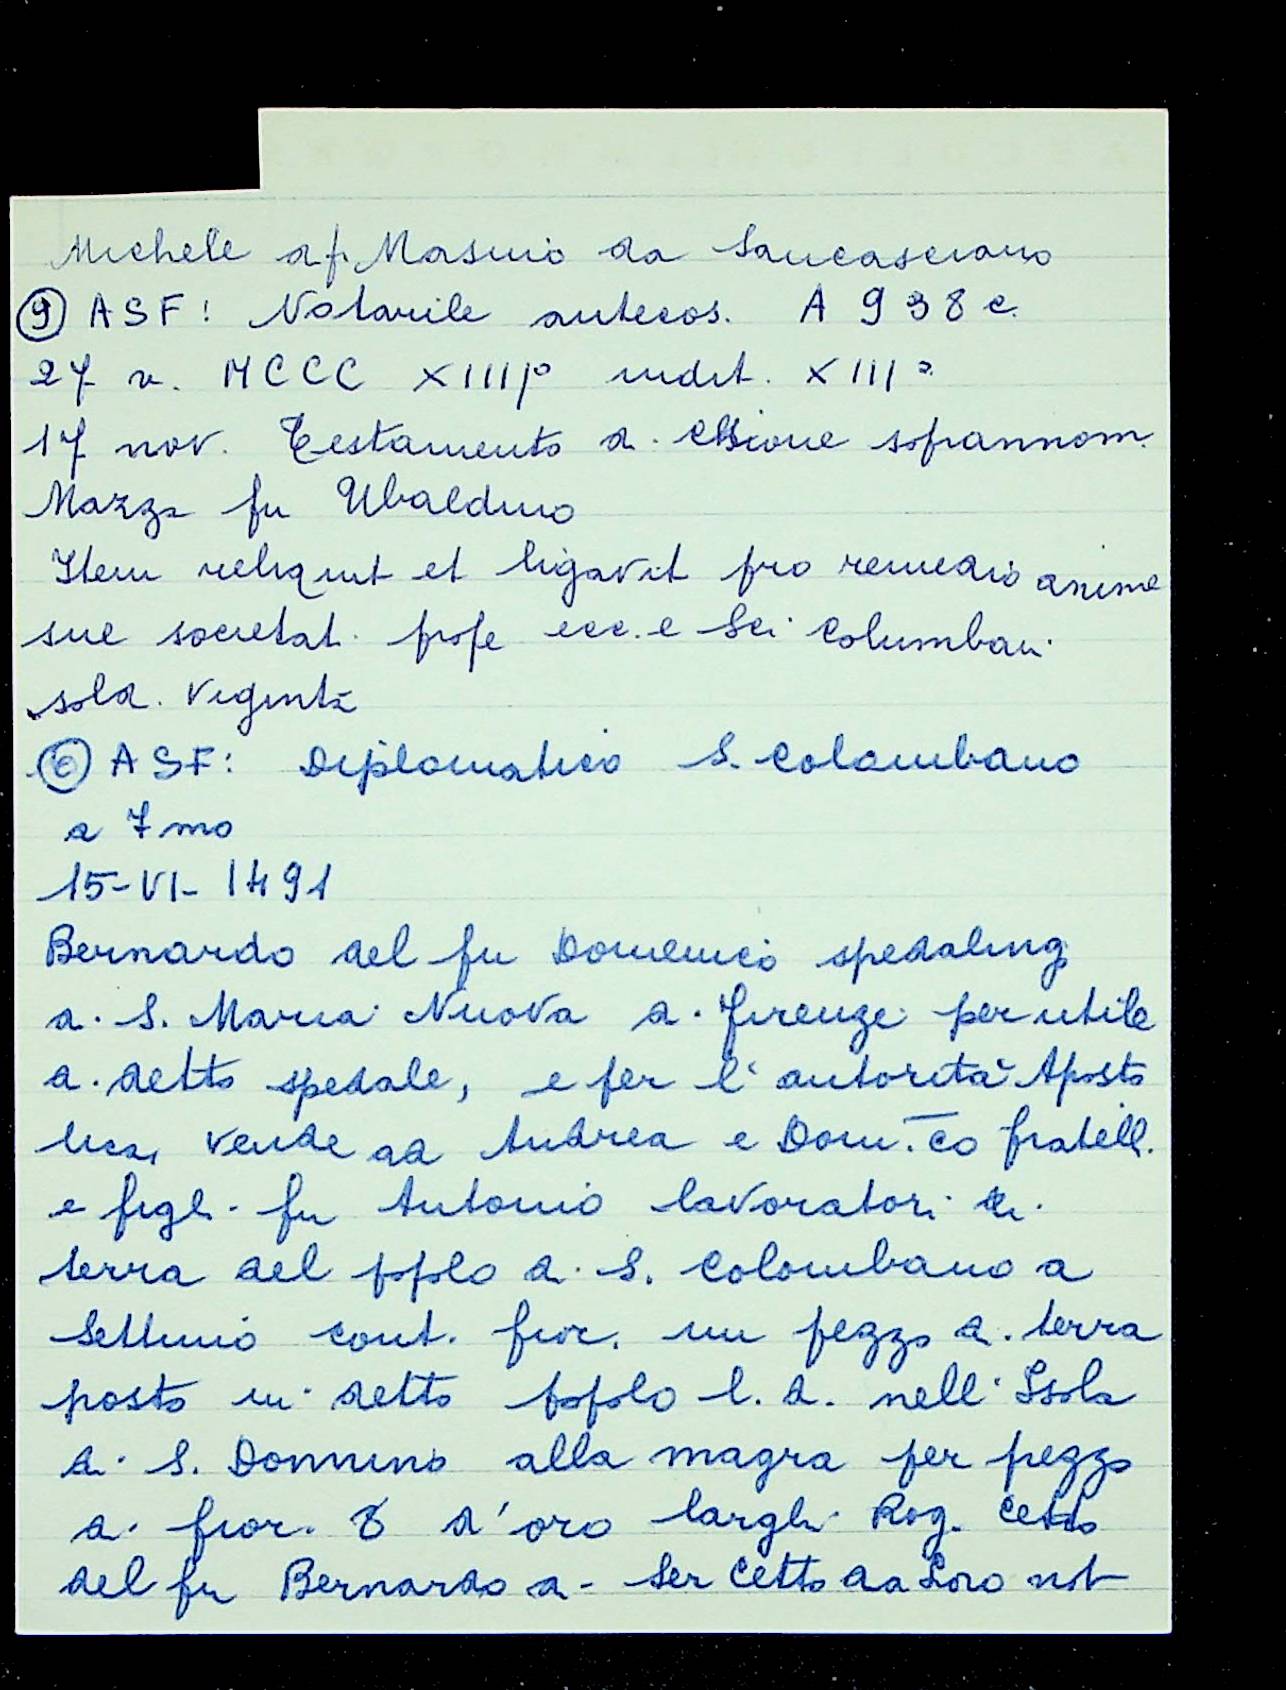 Michele di f. Masino da Sancasciano
9 ASF: Notarile antecos. A 938 c.
27 v. MCCC XIIII° indit. XIII a
17 nov. Testamento di Chione soprannom.
Mazza fu Ubaldino
Item reliquit et ligavit pro remedio anime
sue societat. pope ecc. e Sci Columbani
sold. Viginti
6 ASF: Diplomatico S. Colombano
a 7mo
15-VI-1491
Bernardo del fu Domenico spedaling
di S. Maria Nuova di Firenze per utile
di detto spedale, e per l'autorità Aposto
lica, vende ad Andrea e Dom.co fratelli
e figli fu Antonio lavoratori di
terra del popolo di S. Colombano a
Settimo cont. fior. un pezzo di terra
posto in detto popolo l. d. nell'Isola
di S. Donnino alla magra per pezzo
di fior. 8 d'oro larghi Rog. Cetto
del fu Bernardo di Ser Cetto da Loro not